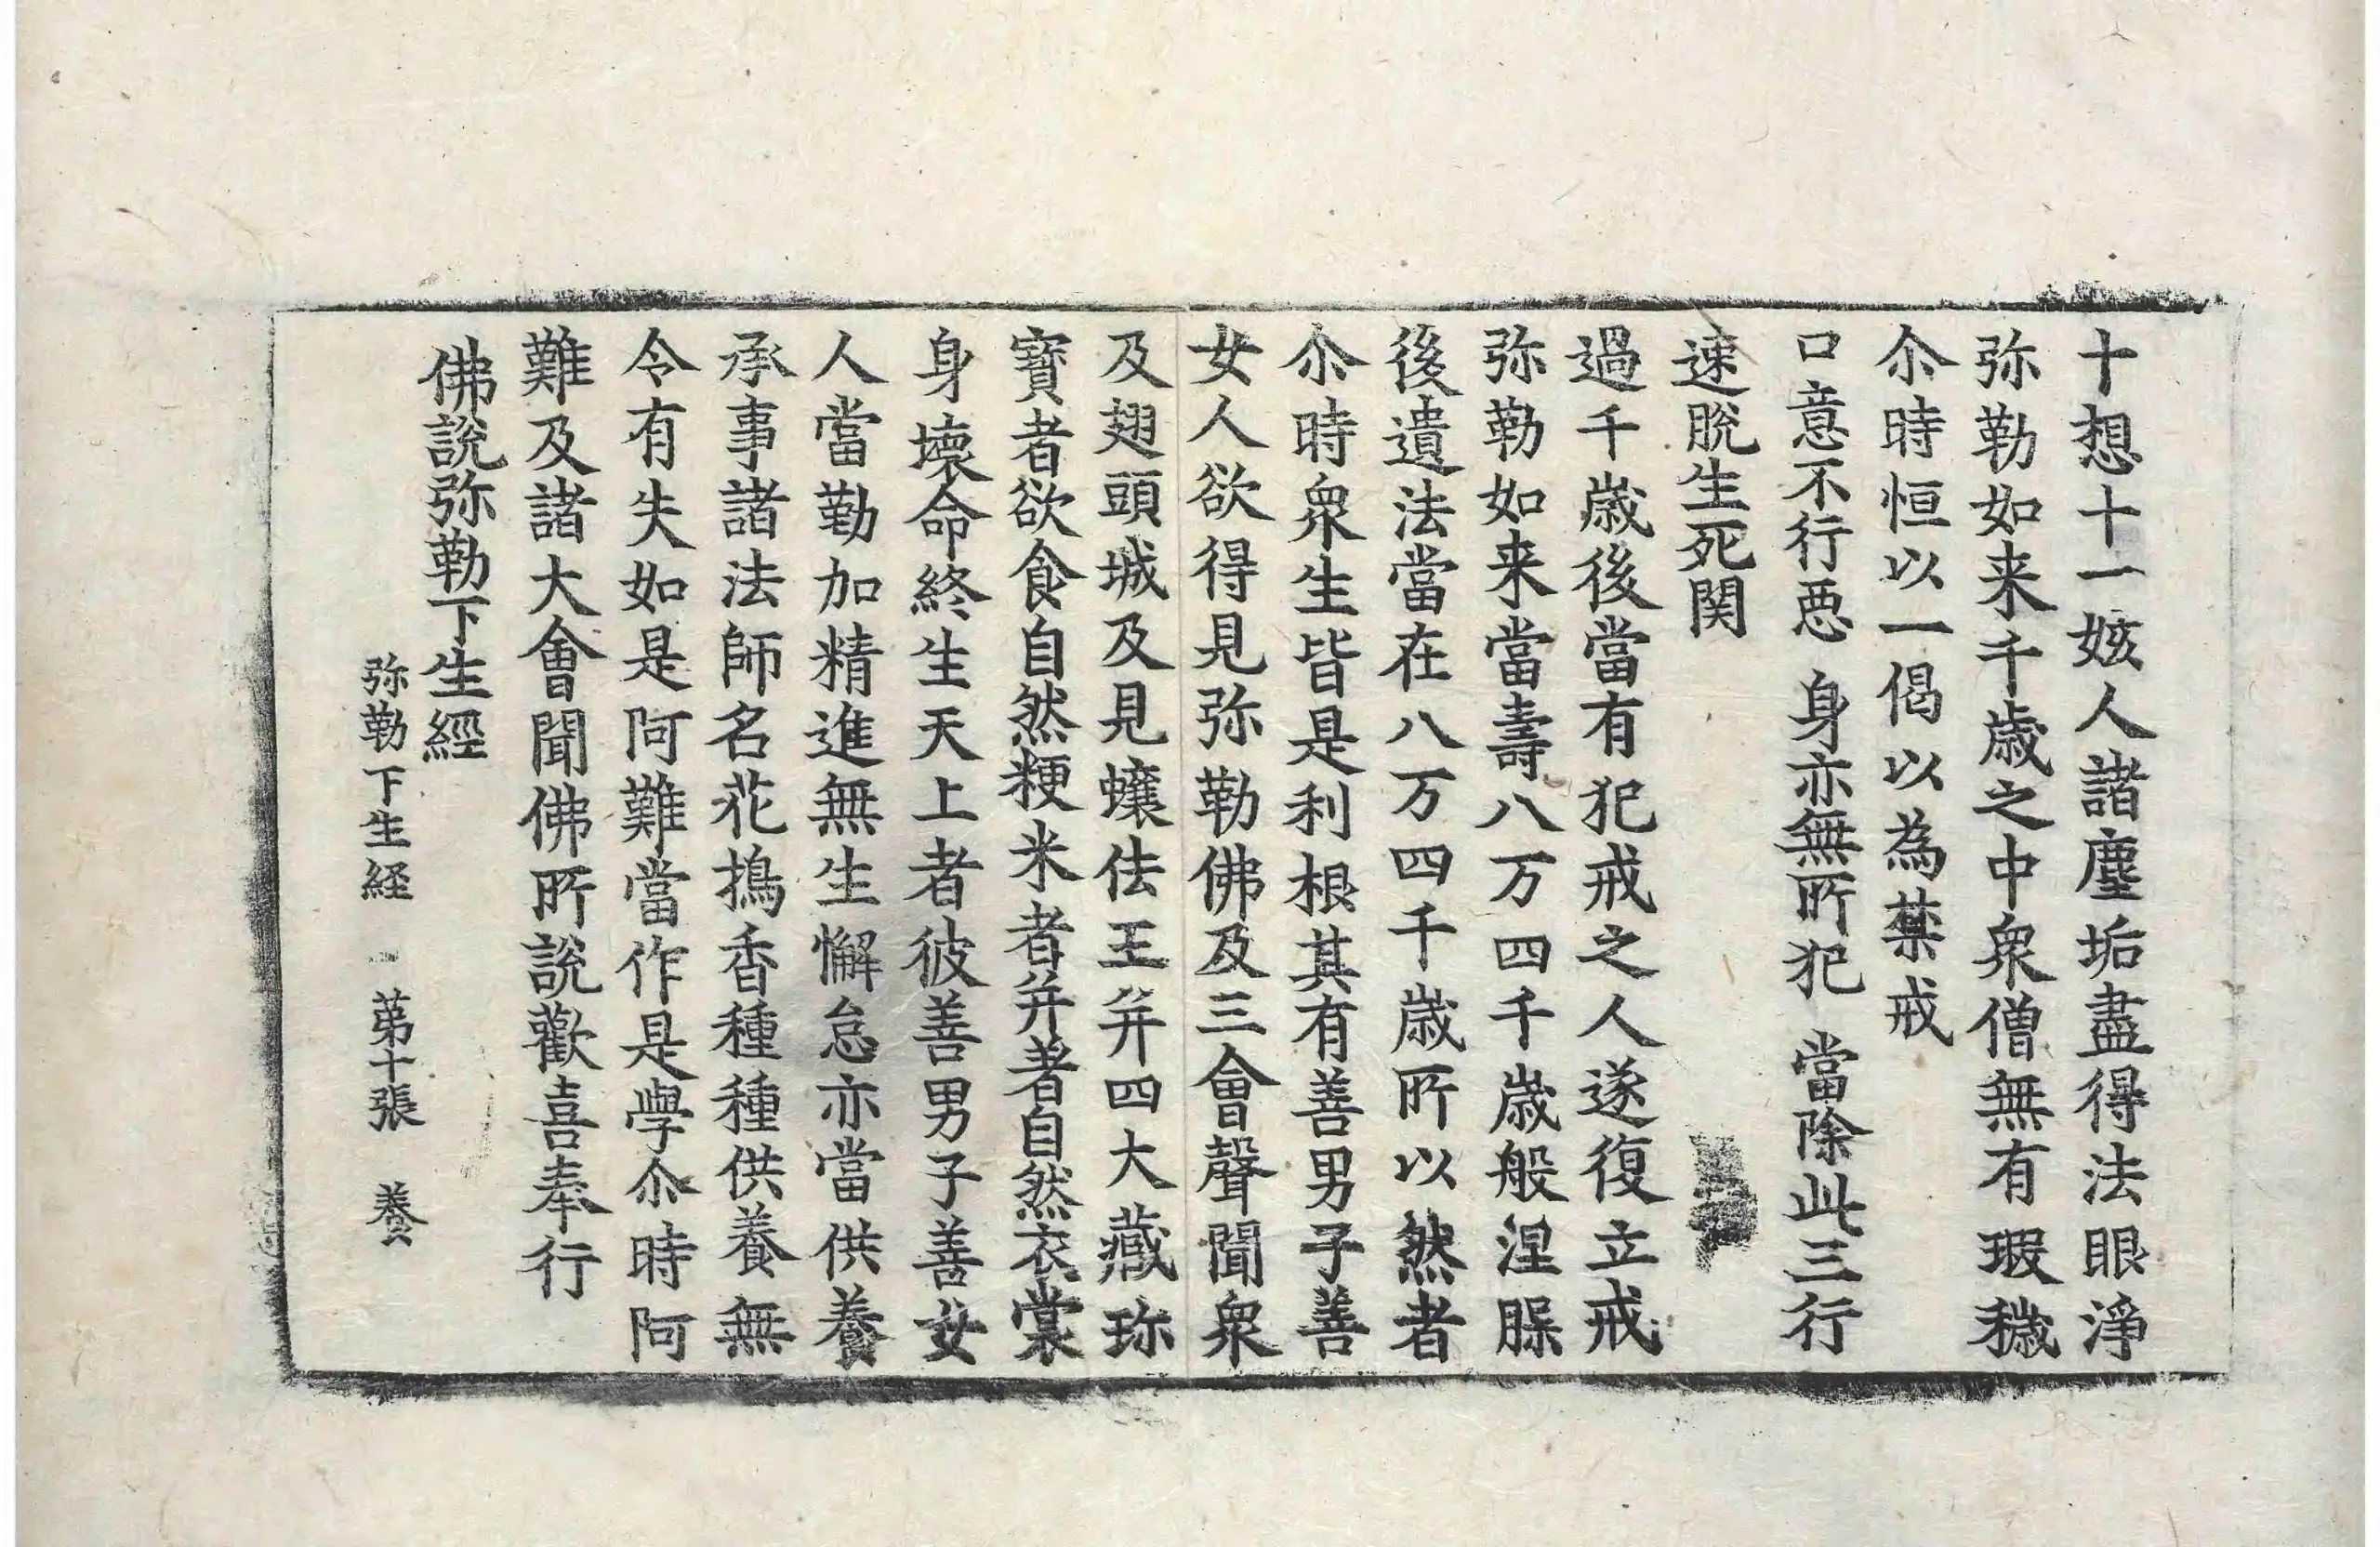 十想十一姟人諸塵垢盡得法眼淨
弥勒如来千歳之中衆僧無有瑕穢
尒時恒以一偈以為禁戒
口意不行悪　身亦無所犯　當除此三行
速脫生死関
過千歳後當有犯戒之人遂復立戒
弥勒如来當壽八万四千歳般涅脲
後遺法當在八万四千歳所以然者
尒時衆生皆是利根其有善男子善
女人欲得見弥勒佛及三會聲聞衆
及翅頭城及見蠰佉王并四大藏珎
寶者欲食自然粳米者并著自然衣裳
身壞命終生天上者彼善男子善女
人當勤加精進無生懈怠亦當供養
承事諸法師名花搗香種種供養無
令有失如是阿難當作是學尒時阿
難及諸大會聞佛所說歡喜奉行
佛說弥勒下生經
弥勒下生経　第十張　養